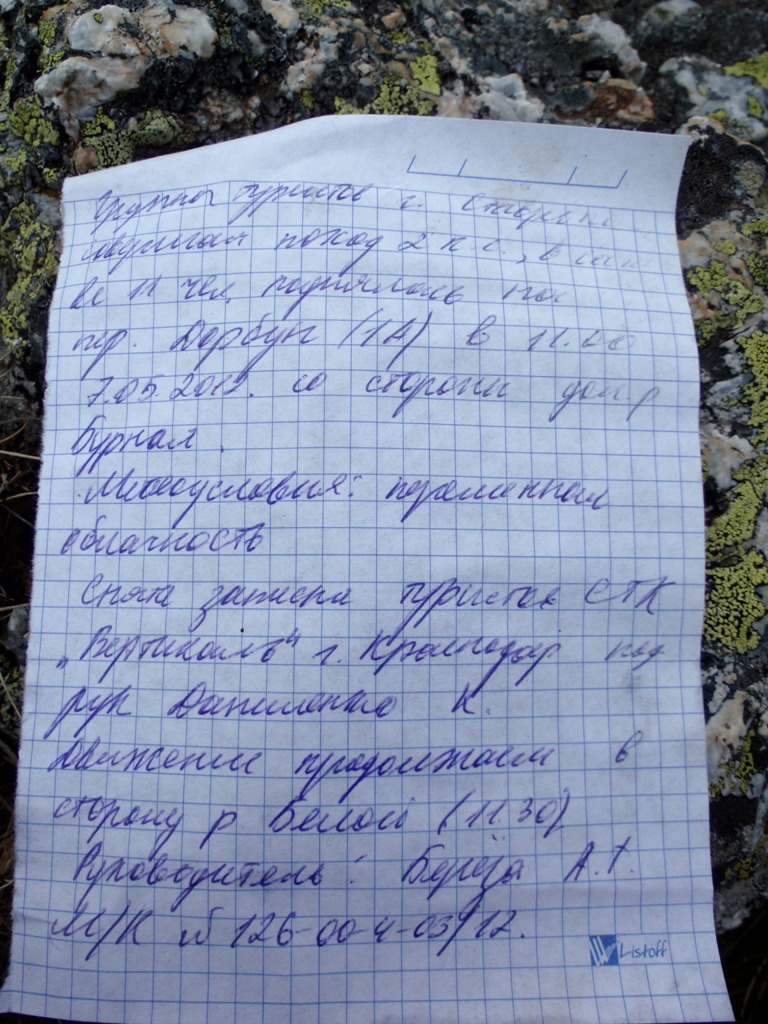 Группа туристов г.
поход 2 к.с., в
ве 11 чел. поднялась на
пер. Дорбун (1А) в 11.00
7.05.2012. со стороны дол.р
Бурная.
Метеоусловия: переменная
облачность
Снята записка туристов СТК
"Вертикаль" г. Краснодар под
рук Даниленко К.
Движение продолжаем в
сторону р Белой (11.30)
Руководитель: Берёза А.Г.
М/К № 126-00-4-03/12.
Listoff